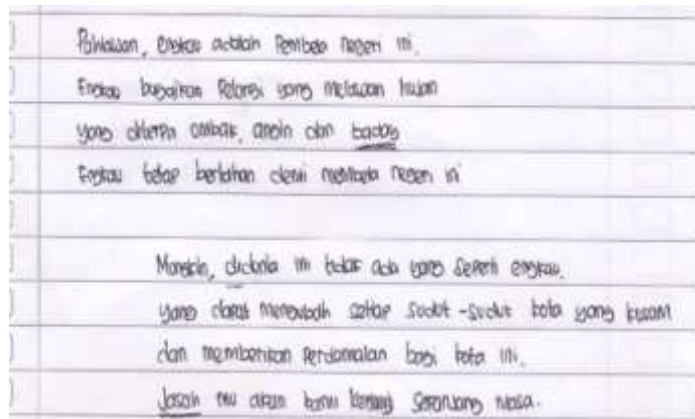 Pahlawan, engkau adalah Pembela negeri ini.
Engkau bagaikan Pelangi yang melawan hujan
yang diterpa ombak, angin dan baday
Engkau tetap bertahan demi membela negeri ini
Mungkin, didunia ini tidak ada yang seperti engkau.
yang dapat mengubah setiap sudut-sudut kota yang kusam
dan memberikan Perdamaian bagi kota ini.
Jasah mu akan kami kenang sepanjang masa.